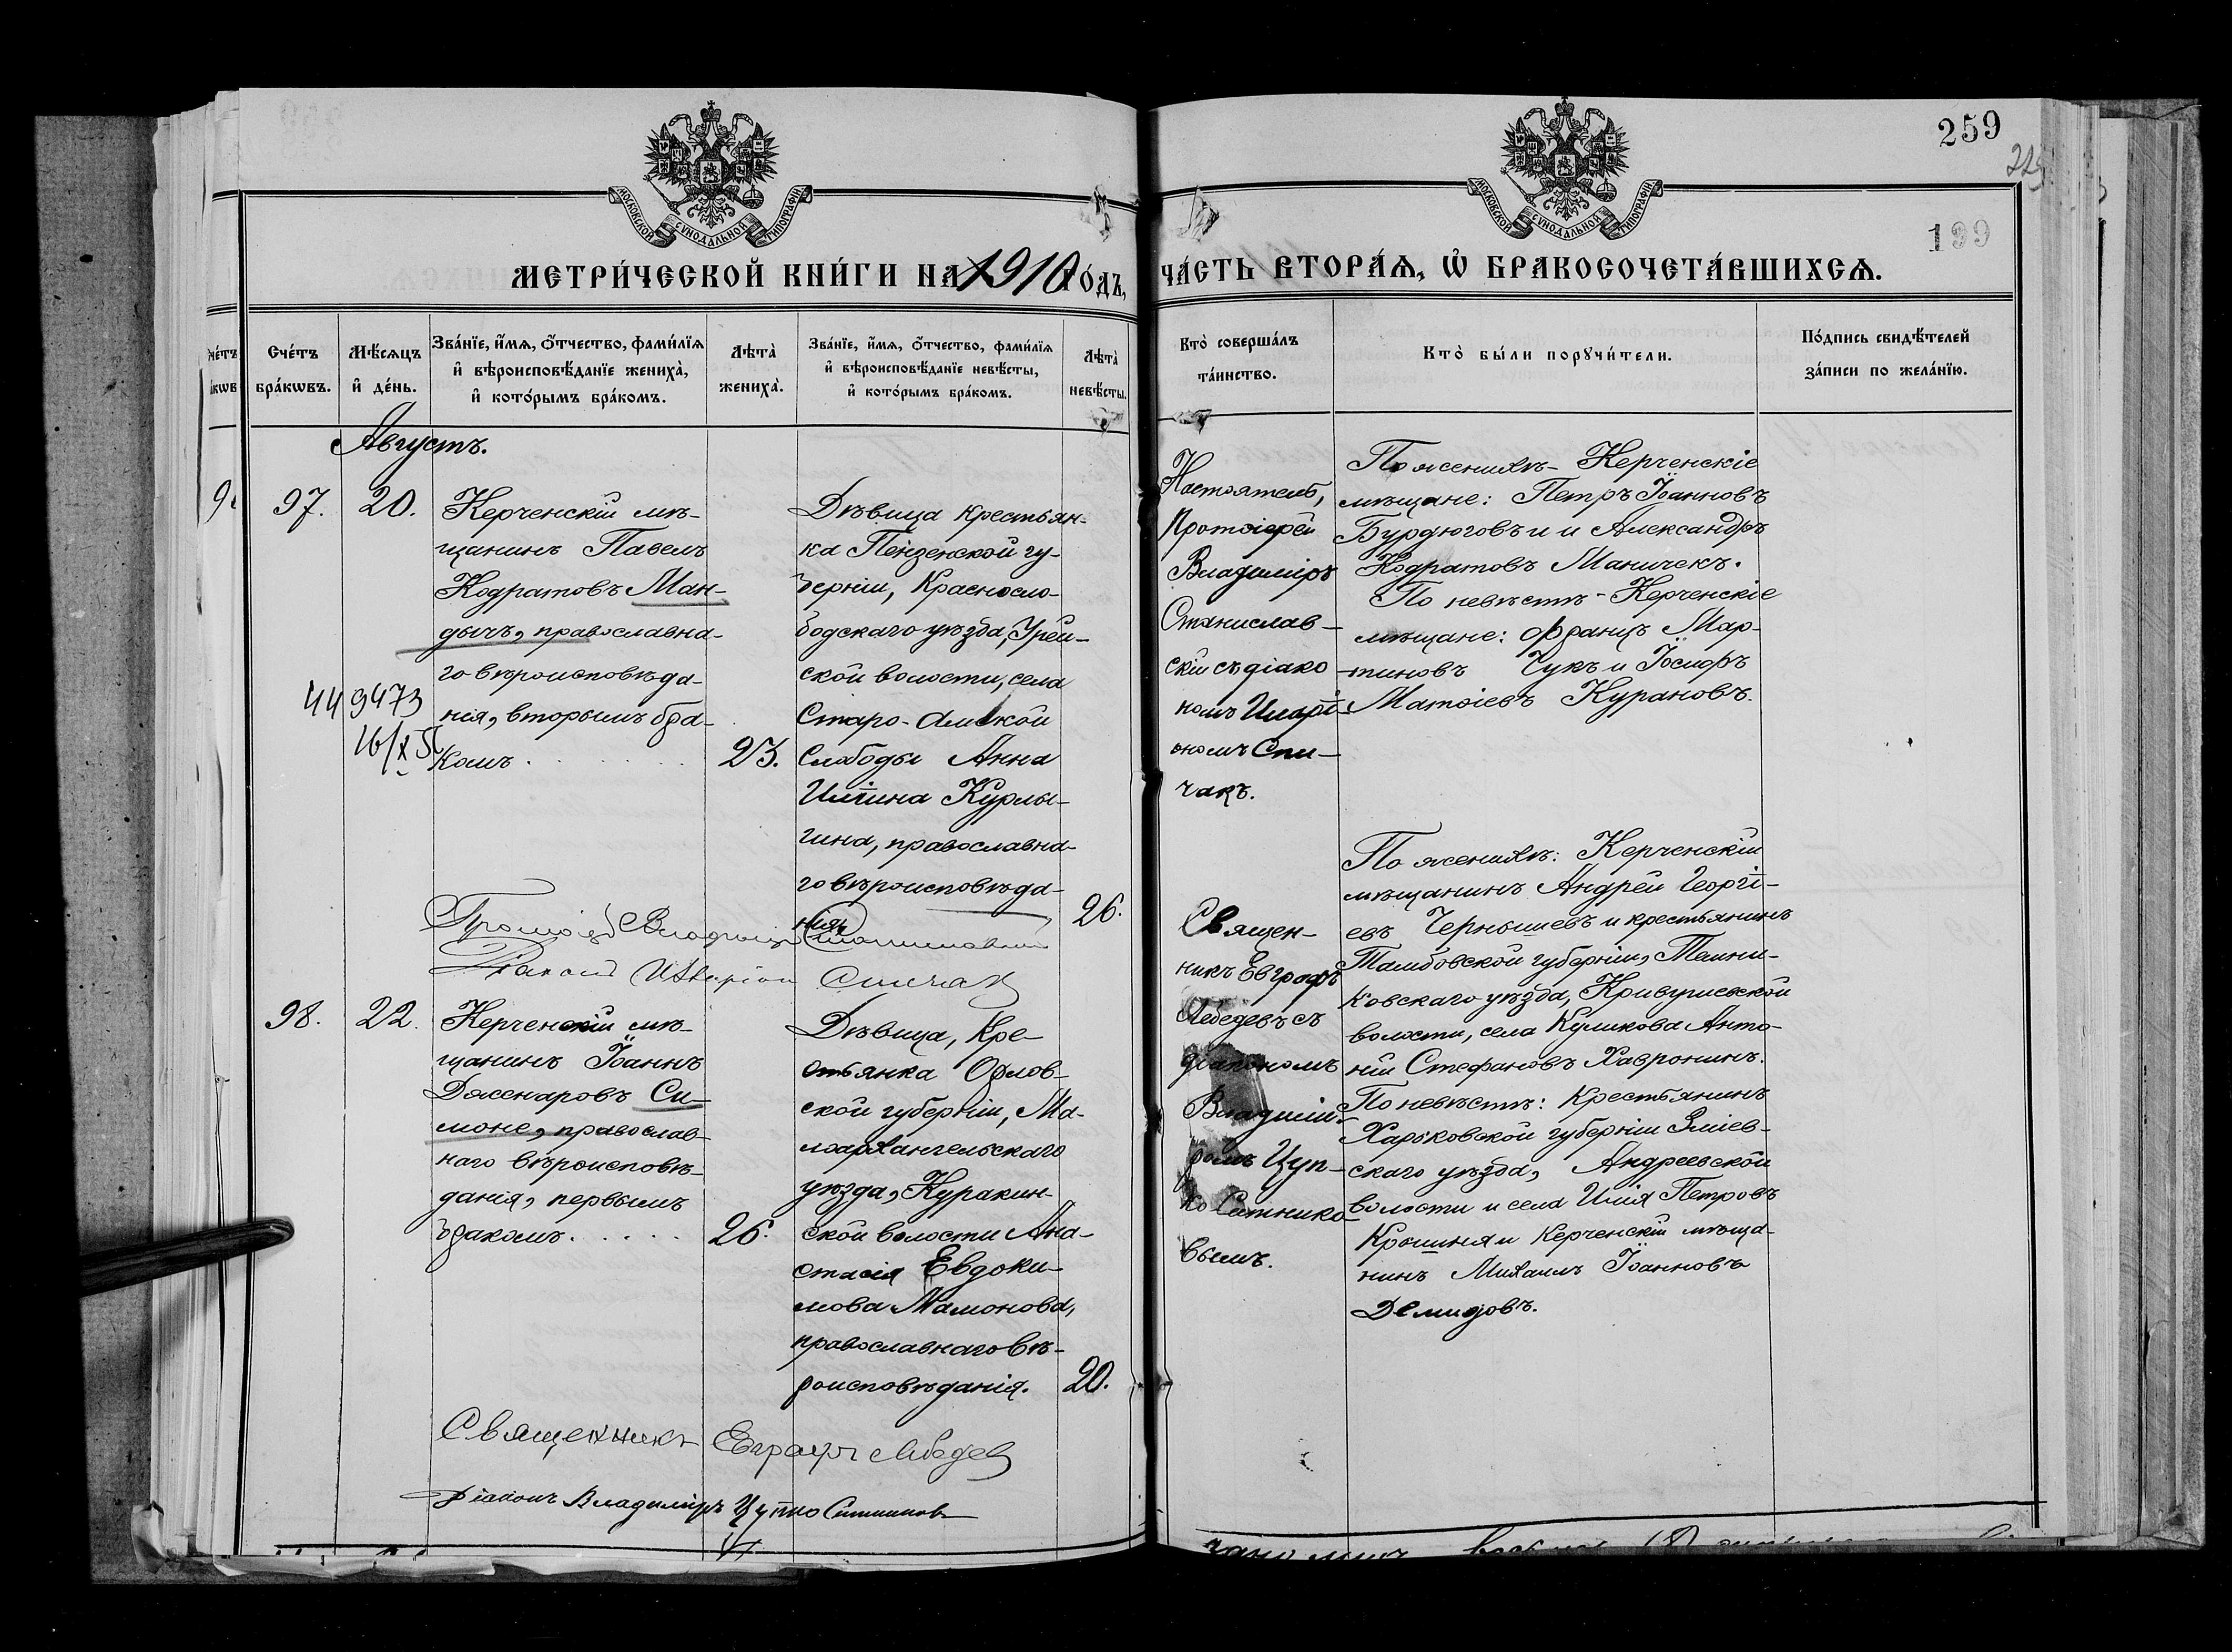 259
225
199
МОСКОВСКОЙ СУНОДАЛЬНОЙ ТИПОГРАФІИ
МОСКОВСКОЙ СУНОДАЛЬНОЙ ТИПОГРАФІИ
МЕТРИ́ЧЕСКОЙ КНИ́ГИ НА 1910 ГО́ДЪ,
ЧА́СТЬ ВТОРА́Ѧ, Ѡ БРАКОСОЧЕТА́ВШИХСѦ.
Сче́тъ
бра́кѡвъ.
Мѣ́сѧцъ
и҆ де́нь.
Зва́нїе, и҆́мѧ, ѻ҆́тчество, фами́лїѧ
и҆ вѣроисповѣ́данїе жениха̀,
и҆ кото́рымъ бра́комъ.
Лѣта̀
жениха̀.
Зва́нїе, и҆́мѧ, ѻ҆́тчество, фами́лїѧ
и҆ вѣроисповѣ́данїе невѣ́сты,
и҆ кото́рымъ бра́комъ.
Лѣта̀
невѣ́сты.
Кто̀ соверша́лъ
та́инство.
Кто̀ бы́ли порꙋчи́тели.
По́дпись свидѣ́телей
за́писи по жела́нїю.
Августъ.
97.
20.
Керченскій мѣ-
щанинъ Павелъ
Кодратовъ Ман-
дычъ, православна-
го вѣроисповѣда-
нія, вторымъ бра-
комъ . . . . . . .
449473
16/X
23.
Дѣвица крестьян-
ка Пензенской гу-
берніи, Красносло-
бодскаго уѣзда, Урей-
ской волости, села
Старо-
Слободы Анна
Иліина Курлы-
гина, православна-
го вѣроисповѣда-
нія
26.
Протоіер Владиміръ Станиславскій
Діаконъ Иларіон Спичак
Настоятель,
Протоіерей
Владиміръ
Станислав-
скій съ діако-
номъ Иларі-
ономъ Спи-
чакъ.
По женихѣ- Керченскіе
мѣщане: Петръ Іоанновъ
Бурдюговъ и и Александръ
Кодратовъ Маничекъ.
По невѣстѣ- Керченскіе
мѣщане: Францъ Мар-
тиновъ Чукъ и Іосифъ
Матѳіевъ Курановъ.
98.
22.
Керченскій мѣ-
щанинъ Іоаннъ
Дженаровъ Си-
моне, православ-
наго вѣроисповѣ-
данія, первымъ
бракомъ. . . . .
26.
Дѣвица, Кре-
стьянка Орлов-
ской губерніи, Ма-
лоархангельскаго
уѣзда, Куракин-
ской волости Ана-
стасія Евдоки-
мова Мамонова,
православнаго вѣ-
роисповѣданія.
20.
Священникъ Евграфъ Лебедев
Діаконъ Владиміръ Цупко Ситников
Священ-
никъ Евграфъ
Лебедевъ съ
діакономъ
Владимі-
ромъ Цуп-
ко Ситнико-
вымъ.
По женихѣ: Керченскій
мѣщанинъ Андрей Георгі-
евъ Чернышевъ и крестьянинъ
Тамбовской губерніи, Темни-
ковскаго уѣзда, Кривушевской
волости, села Куликова Анто-
ній Стефановъ Хавронинъ.
По невѣстѣ: Крестьянинъ
Харьковской губерніи Зміев-
скаго уѣзда, Андреевской
волости и села Илія Петровъ
и Керченскій мѣща-
нинъ Михаилъ Іоанновъ
Демидовъ.